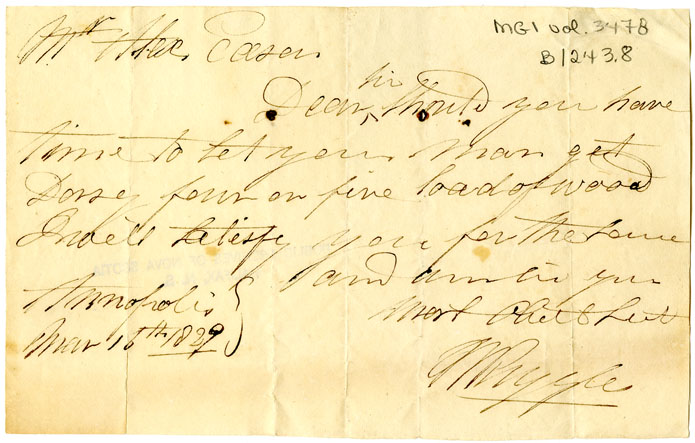 MG1 vol. 3478
B1243.8
Mr
Dear sir, Should you have
time to let your man get
Dorsey four or five load of wood
I will satisfy you for the same
and
Annapolis
Mar 16th 1829
most Obet Svt